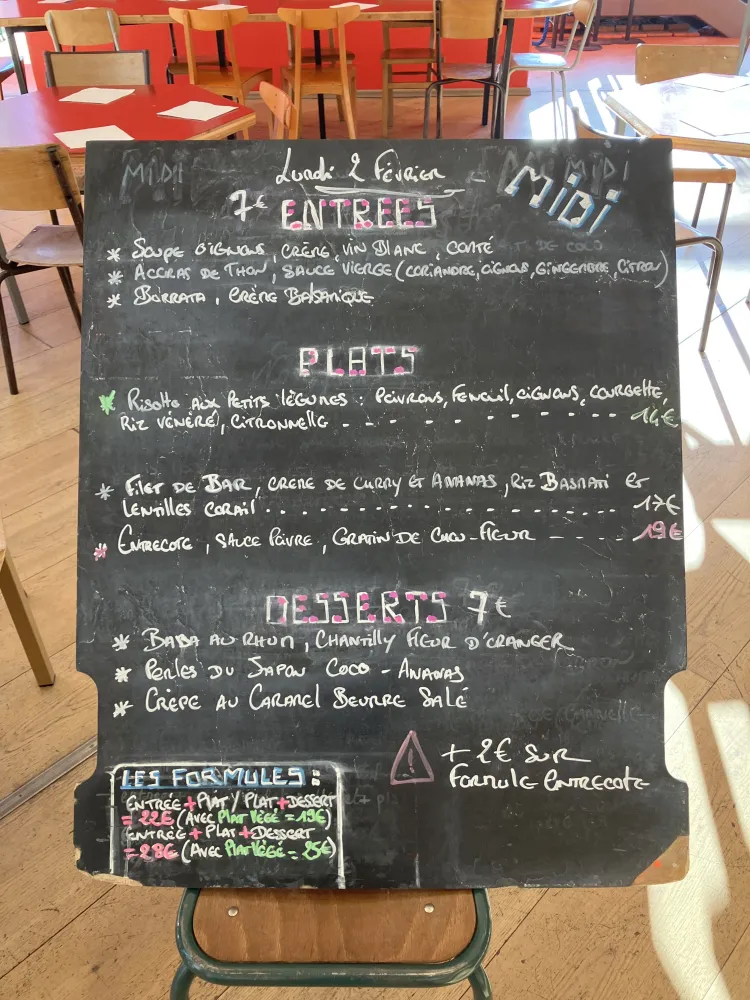 MIDI
Lundi 2 Février - MIDI
7€ ENTREES
* SOUPE OIGNONS, CRÈME, VIN BLANC, COMTÉ
* ACCRAS DE THON, SAUCE VIERGE (CORIANDRE, OIGNONS, GINGEMBRE, CITRON)
* BURRATA, CRÈME BALSAMIQUE
PLATS
* RISOTTO AUX PETITS LÉGUMES : POIVRONS, FENOUIL, OIGNONS, COURGETTE,
RIZ VÉNÉRÉ, CITRONNELLE - - - - - - - - - - - 14€
* FILET DE BAR, CREME DE CURRY ET ANANAS, RIZ BASMATI ET
LENTILLES CORAIL . . . . . . . . . . . . . . . . . 17€
* ENTRECOTE, SAUCE POIVRE, GRATIN DE CHOU-FLEUR - - - - 19€
DESSERTS 7€
* BABA AU RHUM, CHANTILLY FLEUR D'ORANGER
* PERLES DU JAPON COCO - ANANAS
* CRÊPE AU CARAMEL BEURRE SALÉ
! + 2€ SUR
FORMULE ENTRECOTE
LES FORMULES :
ENTRÉE + PLAT / PLAT + DESSERT
= 22€ (AVEC PLAT VÉGÉ = 19€)
ENTRÉE + PLAT + DESSERT
= 28€ (AVEC PLAT VÉGÉ = 25€)